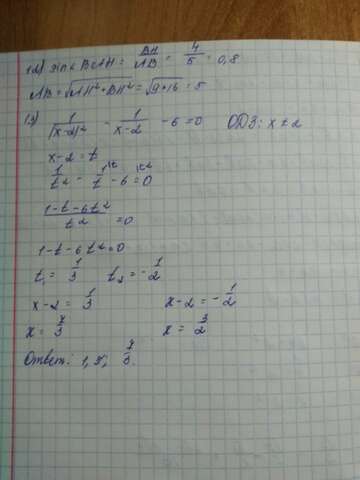 12) sin∠BAH = BH/AB = 4/5 = 0,8
AB = √AH²+BH² = √9+16 = 5
13) 1/(x-2)² - 1/x-2 - 6 = 0 ОДЗ: x ≠ 2
x-2 = t
1/t² - 1/t - 6 = 0
1-t-6t²/t² = 0
1-t-6t²=0
t₁ = 1/3 t₂ = -1/2
x-2 = 1/3 x-2 = -1/2
x = 7/3 x = 3/2
Ответ: 1,5; 7/3.